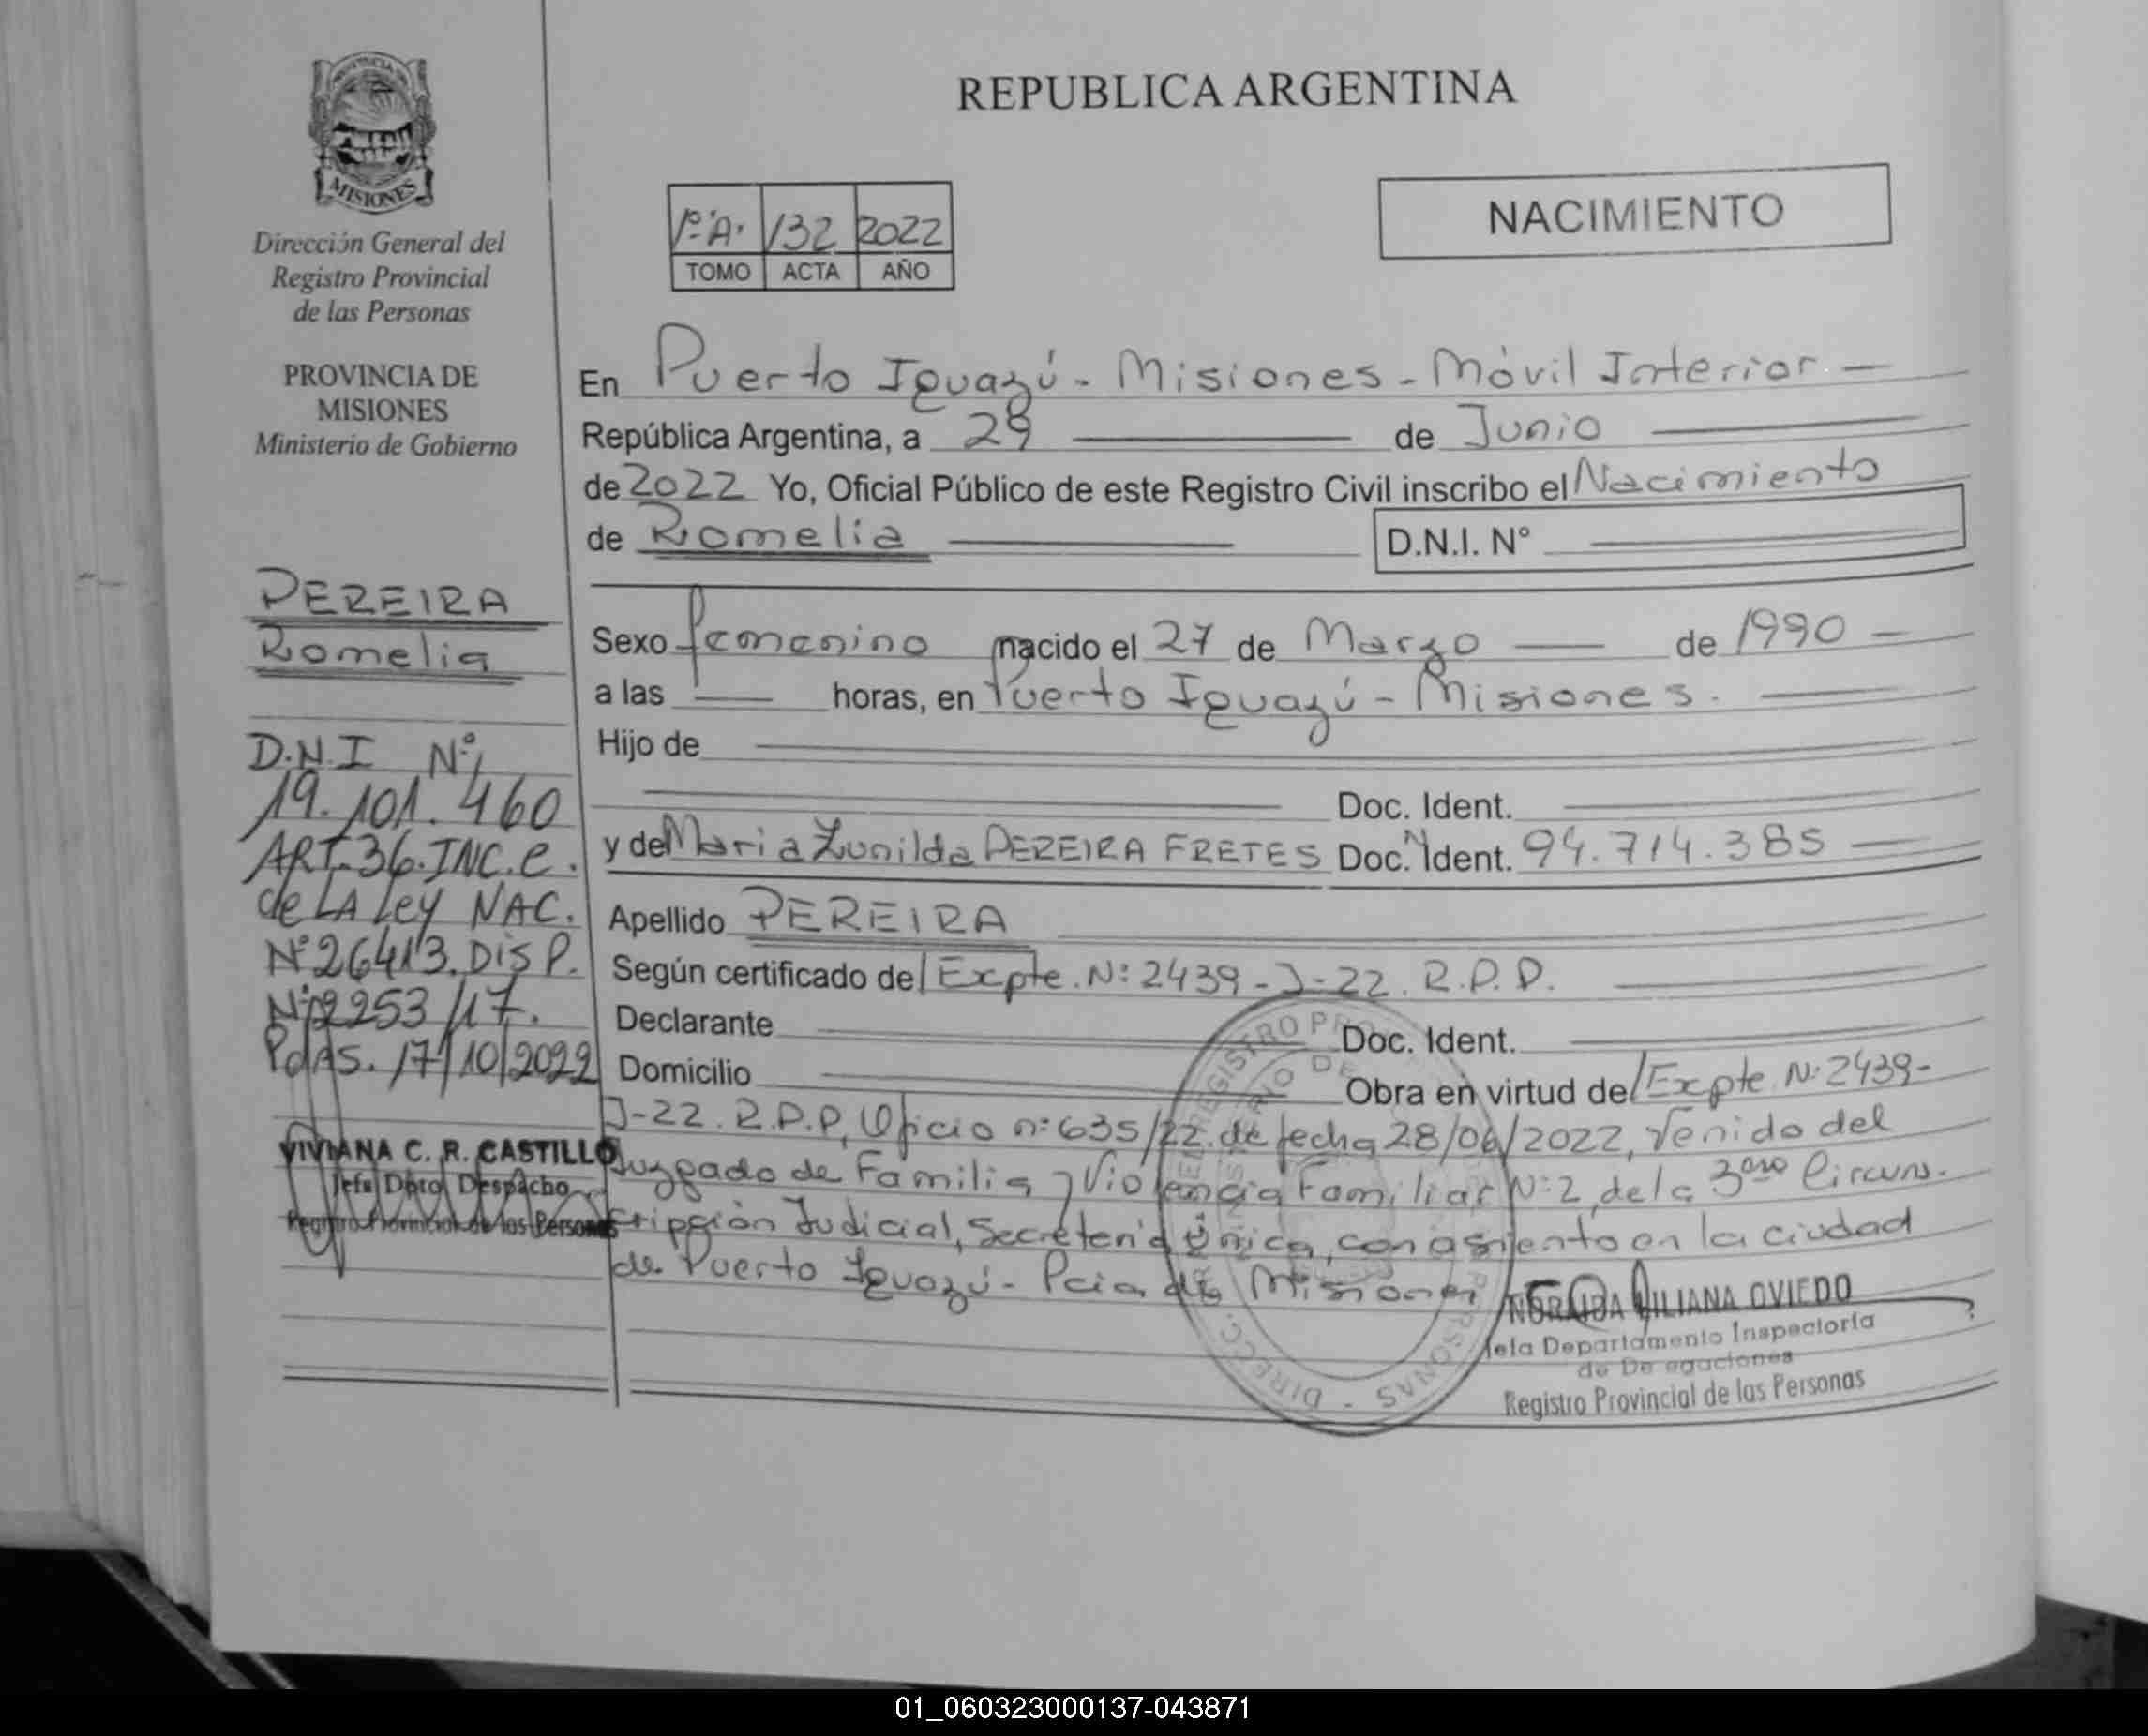 REPUBLICA ARGENTINA
MISIONES
Dirección General del
Registro Provincial
de las Personas
PROVINCIA DE
MISIONES
Ministerio de Gobierno
1º"A" 132 2022
TOMO ACTA AÑO
NACIMIENTO
En Puerto Iguazú - Misiones - Móvil Interior. —
República Argentina, a 29 — de Junio —
de 2022 Yo, Oficial Público de este Registro Civil inscribo el Nacimiento
de Romelia — D.N.I. N° —
Sexo femenino nacido el 27 de Marzo — de 1990 —
a las — horas, en Puerto Iguazú - Misiones. —
Hijo de —
— Doc. Ident. —
y de Maria Zunilda PEREIRA FRETES Doc. Ident. 94.714.385 —
Apellido PEREIRA —
Según certificado del Expte. Nº 2439-J-22. R.P.P. —
Declarante — Doc. Ident. —
Domicilio — Obra en virtud del Expte Nº 2439-
J-22. R.P.P, Oficio nº 635/22. de fecha 28/06/2022, venido del
Juzgado de Familia y Violencia Familiar Nº 2, de la 3era Circuns-
cripción Judicial, Secretería Única, con asiento en la ciudad
de Puerto Iguazú - Pcia de Misiones
PEREIRA
Romelia
D.N.I Nº
19.101.460
ART.36.INC.C.
de LA Ley NAC.
Nº 26413. DISP.
Nº 2253/17.
Pdas. 17/10/2022
VIVIANA C. R. CASTILLO
Jefa Dpto Despacho
Registro Provincial de las Personas
LILIANA OVIEDO
Jefa Departamento Inspectoría
de Delegaciones
Registro Provincial de las Personas
01_060323000137-043871